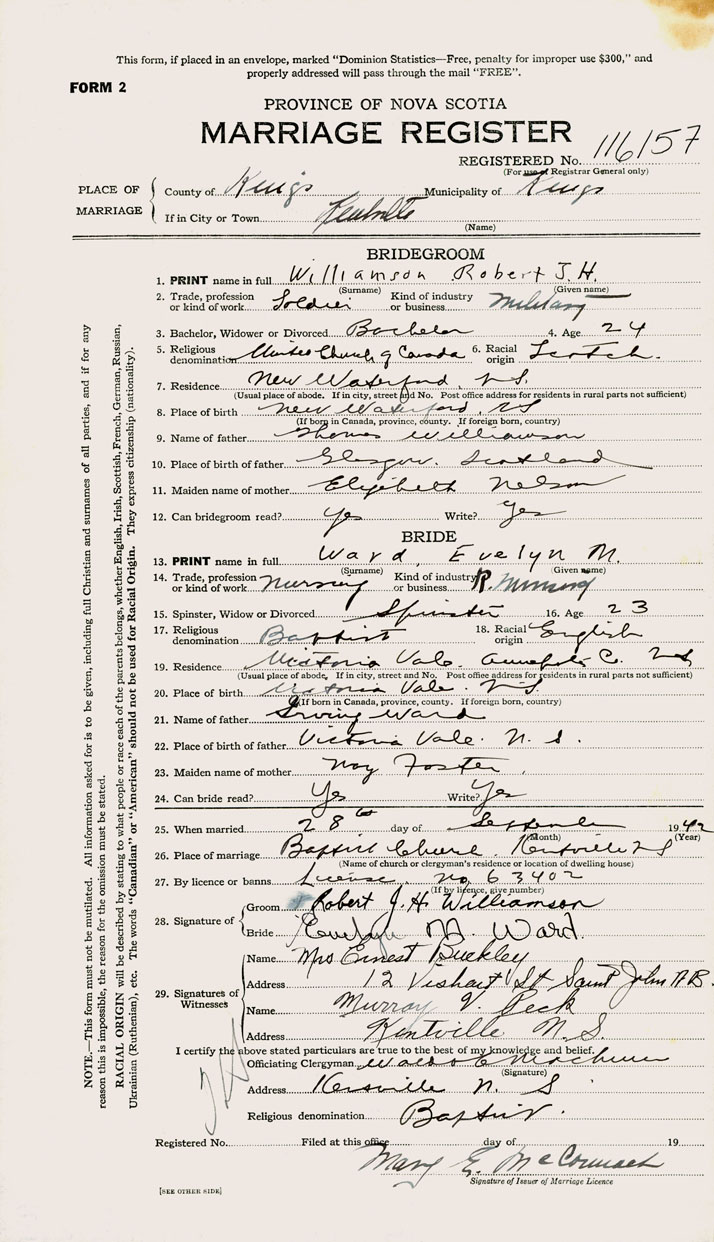 This form, if placed in an envelope, marked "Dominion Statistics—Free, penalty for improper use $300," and
properly addressed will pass through the mail "FREE".
FORM 2
PROVINCE OF NOVA SCOTIA
MARRIAGE REGISTER
REGISTERED No. 116157
(For use of Registrar General only)
PLACE OF MARRIAGE
County of Kings Municipality of Kings
If in City or Town Kentville
(Name)
BRIDEGROOM
1. PRINT name in full Williamson Robert J. H.
(Surname) (Given name)
2. Trade, profession or kind of work Soldier Kind of industry or business Military
3. Bachelor, Widower or Divorced Bachelor 4. Age 24
5. Religious denomination United Church of Canada 6. Racial origin Scotch.
7. Residence New Waterford, N.S.
(Usual place of abode. If in city, street and No. Post office address for residents in rural parts not sufficient)
8. Place of birth New Waterford, NS
(If born in Canada, province, county. If foreign born, country)
9. Name of father Thomas Williamson
10. Place of birth of father Glasgow. Scotland
11. Maiden name of mother Elizabeth Nelson
12. Can bridegroom read? Yes Write? Yes
BRIDE
13. PRINT name in full Ward, Evelyn M.
(Surname) (Given name)
14. Trade, profession or kind of work Nursing Kind of industry or business R. Nursing
15. Spinster, Widow or Divorced Spinster 16. Age 23
17. Religious denomination Baptist 18. Racial origin English
19. Residence Victoria Vale. Annapolis C. NS
(Usual place of abode, If in city, street and No. Post office address for residents in rural parts not sufficient)
20. Place of birth Victoria Vale. N.S.
(If born in Canada, province, county. If foreign born, country)
21. Name of father Irving Ward
22. Place of birth of father Victoria Vale. N. S.
23. Maiden name of mother Foster
24. Can bride read? Yes Write? Yes
25. When married 28th day of September 1942
(Month) (Year)
26. Place of marriage Baptist Church. Kentville NS
(Name of church or clergyman's residence or location of dwelling house)
27. By licence or banns License. No. 63402
(If by licence, give number)
28. Signature of
Groom Robert J. H. Williamson
Bride Evelyn M. Ward.
29. Signatures of Witnesses
Name Mrs Ernest Buckley
Address 12 Vishart St Saint John N.B.
Name Murray V. Peck
Address Kentville N. S.
I certify the above stated particulars are true to the best of my knowledge and belief.
Officiating Clergyman
(Signature)
Address Kentville N. S.
Religious denomination Baptist.
Registered No. Filed at this office day of 19
Mary E. McCormack
Signature of Issuer of Marriage Licence
[SEE OTHER SIDE]
NOTE.—This form must not be mutilated. All information asked for is to be given, including full Christian and surnames of all parties, and if for any
reason this is impossible, the reason for the omission must be stated.
RACIAL ORIGIN will be described by stating to what people or race each of the parents belongs, whether English, Irish, Scottish, French, German, Russian,
Ukrainian (Ruthenian), etc. The words "Canadian" or "American" should not be used for Racial Origin. They express citizenship (nationality).